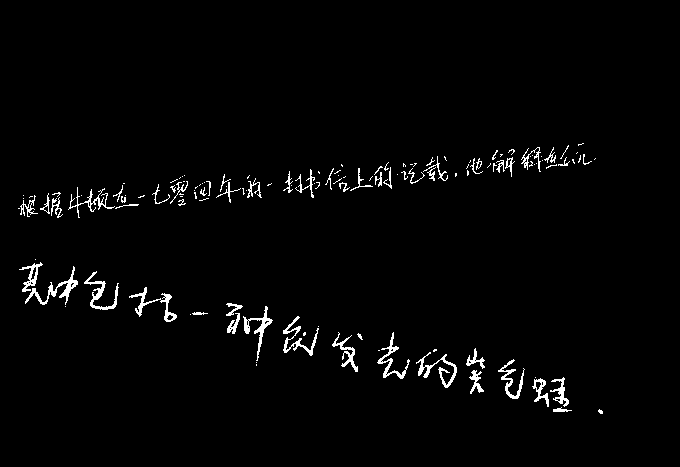 根据牛顿在一七零四年的一封书信上的记载,他解释在公元
其中包括一种会发光的紫色蛙.